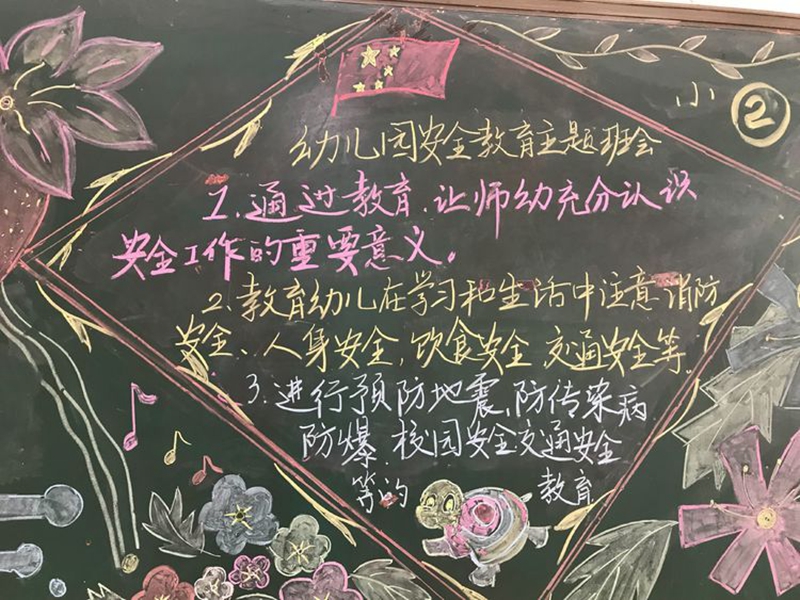 小②
幼儿园安全教育主题班会
1.通过教育,让师幼充分认识
安全工作的重要意义。
2.教育幼儿在学习和生活中注意消防
安全、人身安全,饮食安全 交通安全等
3.进行预防地震,防传染病
防爆 校园安全交通安全
等的 教育